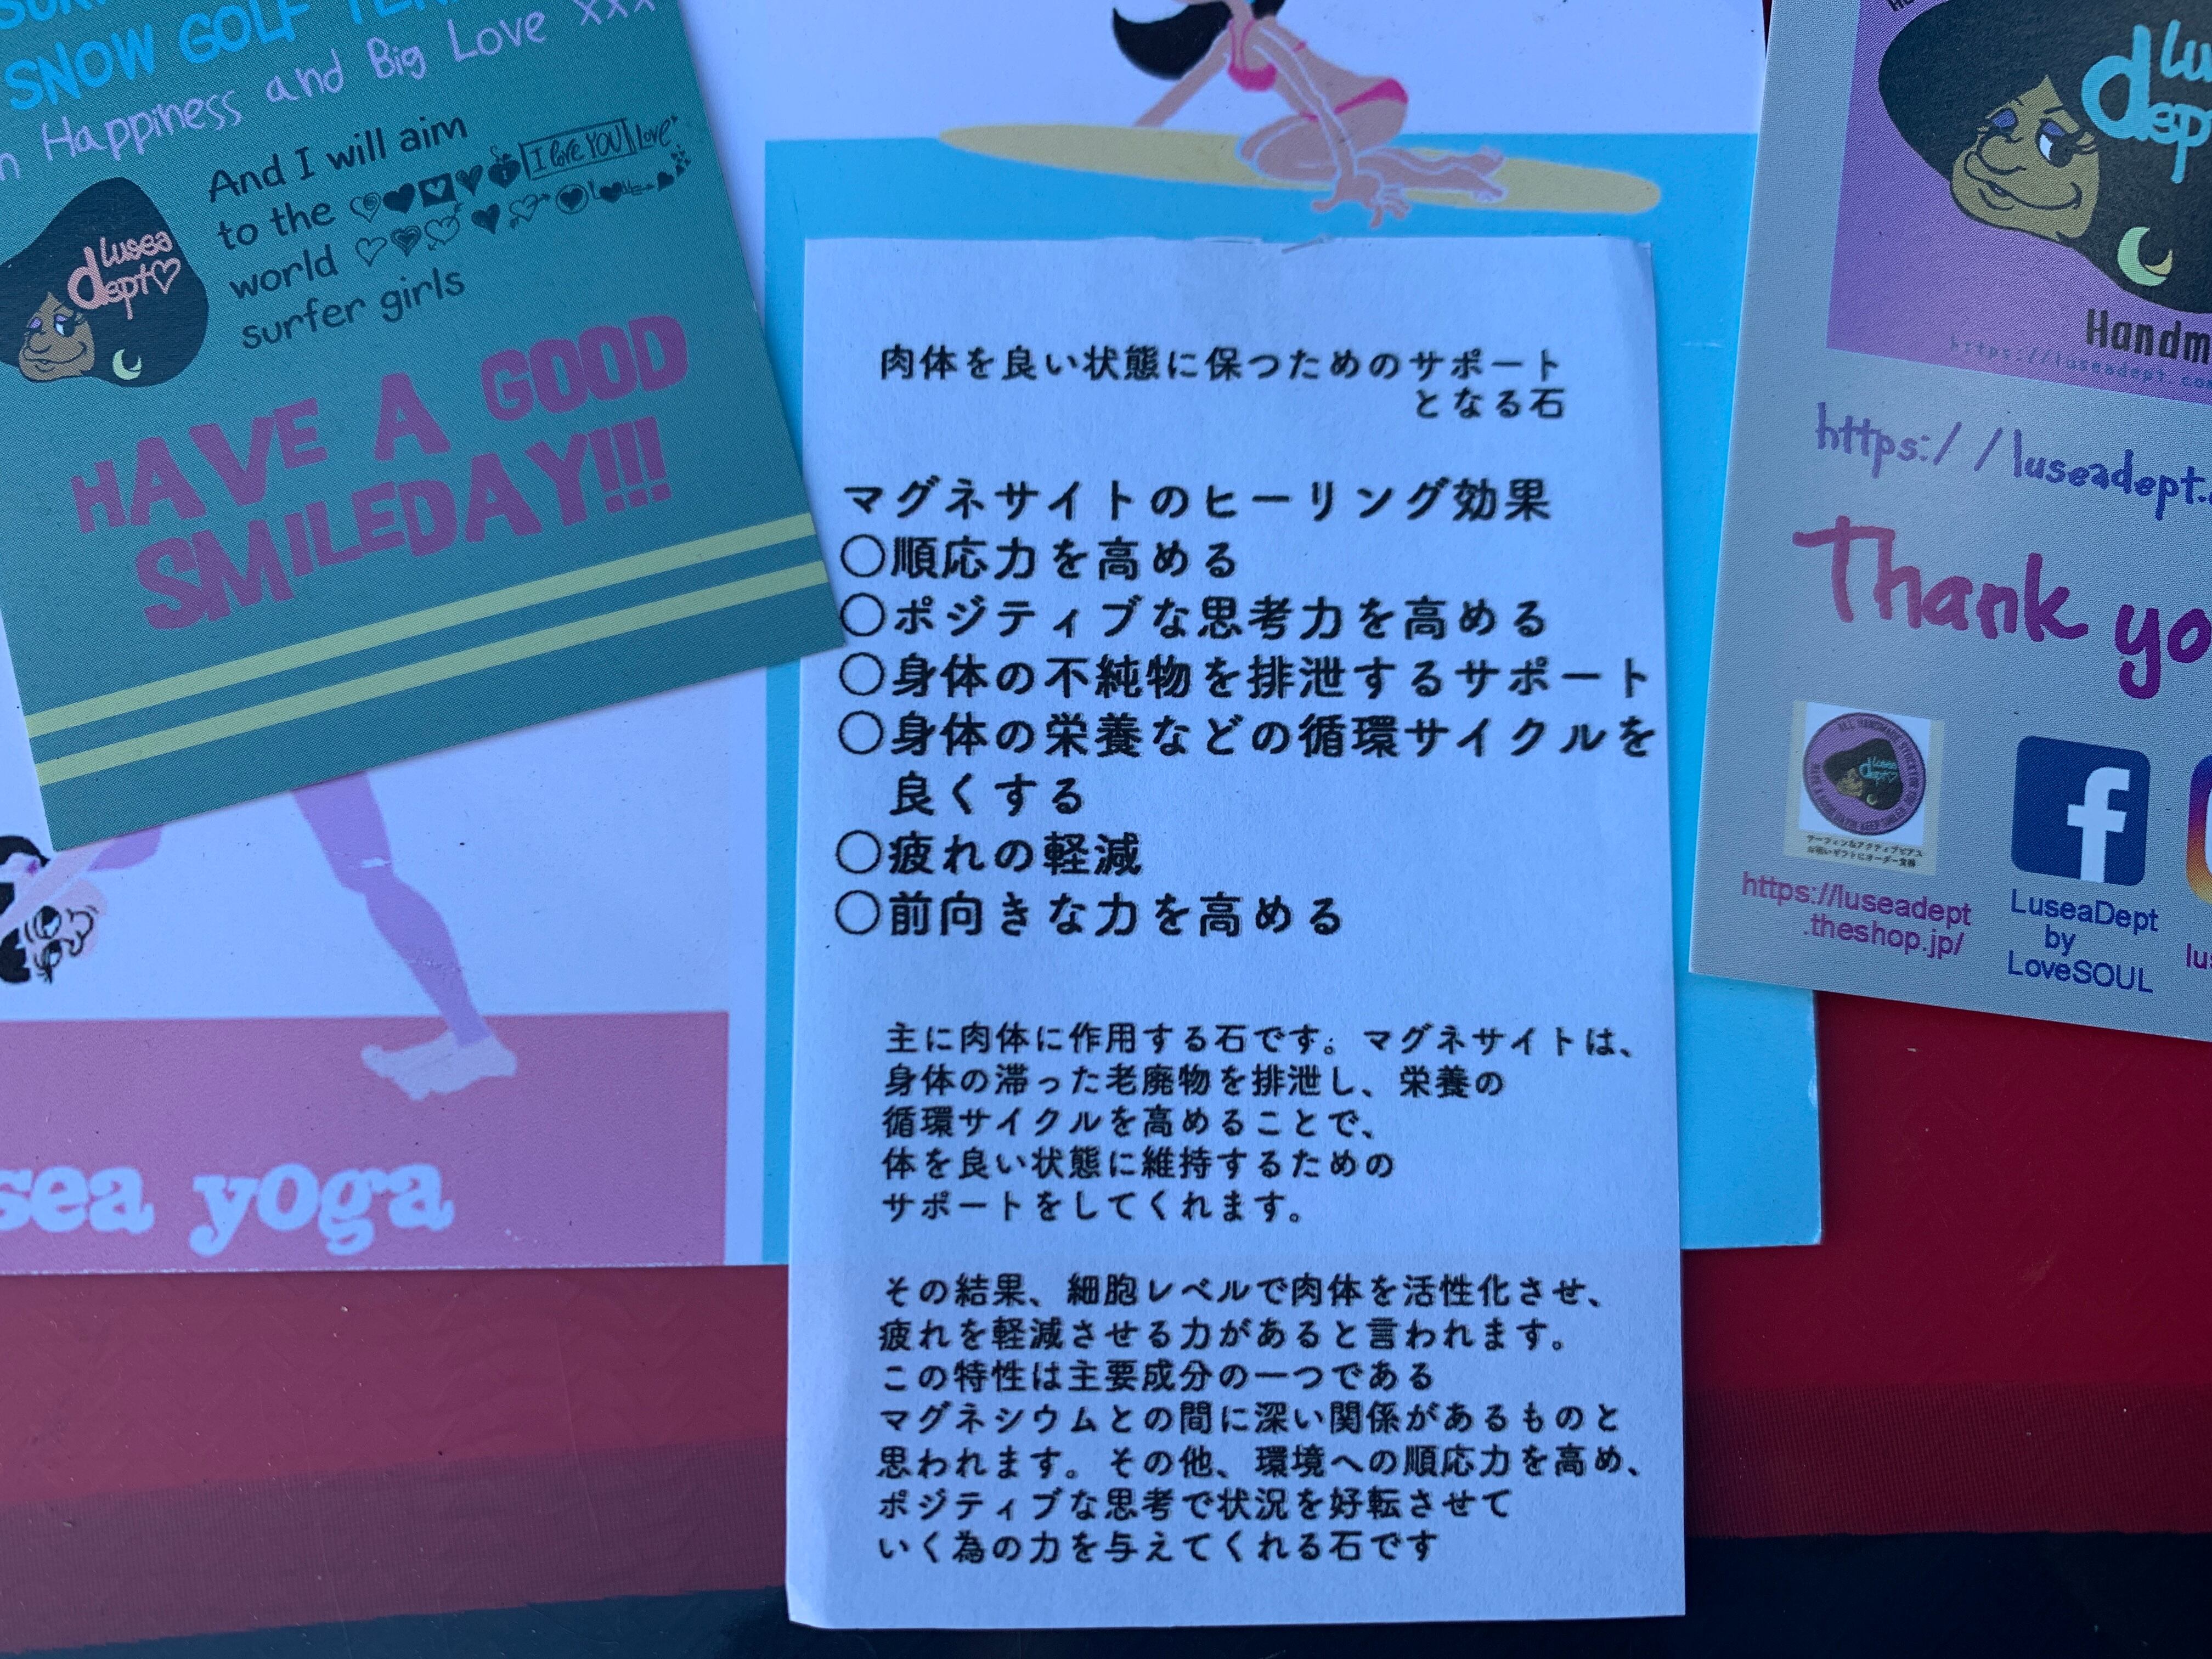 SNOW GOLF
Happiness and Big Love xxx
And I will aim
to the I love YOU Love
world
surfer girls
lusea
dept♡
HAVE A GOOD
SMILEDAY!!!
sea yoga
肉体を良い状態に保つためのサポート
となる石
マグネサイトのヒーリング効果
○順応力を高める
○ポジティブな思考力を高める
○身体の不純物を排泄するサポート
○身体の栄養などの循環サイクルを
良くする
○疲れの軽減
○前向きな力を高める
主に肉体に作用する石です。マグネサイトは、
身体の滞った老廃物を排泄し、栄養の
循環サイクルを高めることで、
体を良い状態に維持するための
サポートをしてくれます。
その結果、細胞レベルで肉体を活性化させ、
疲れを軽減させる力があると言われます。
この特性は主要成分の一つである
マグネシウムとの間に深い関係があるものと
思われます。その他、環境への順応力を高め、
ポジティブな思考で状況を好転させて
いく為の力を与えてくれる石です
lu
dept
Handm
https://luseadept.co
https://luseadept.
Thank yo
lusea
dept♡
サーフィン&アクティブピアス
お祝いギフトにオーダー交換
https://luseadept
.theshop.jp/
f
LuseaDept
by
LoveSOUL
lus